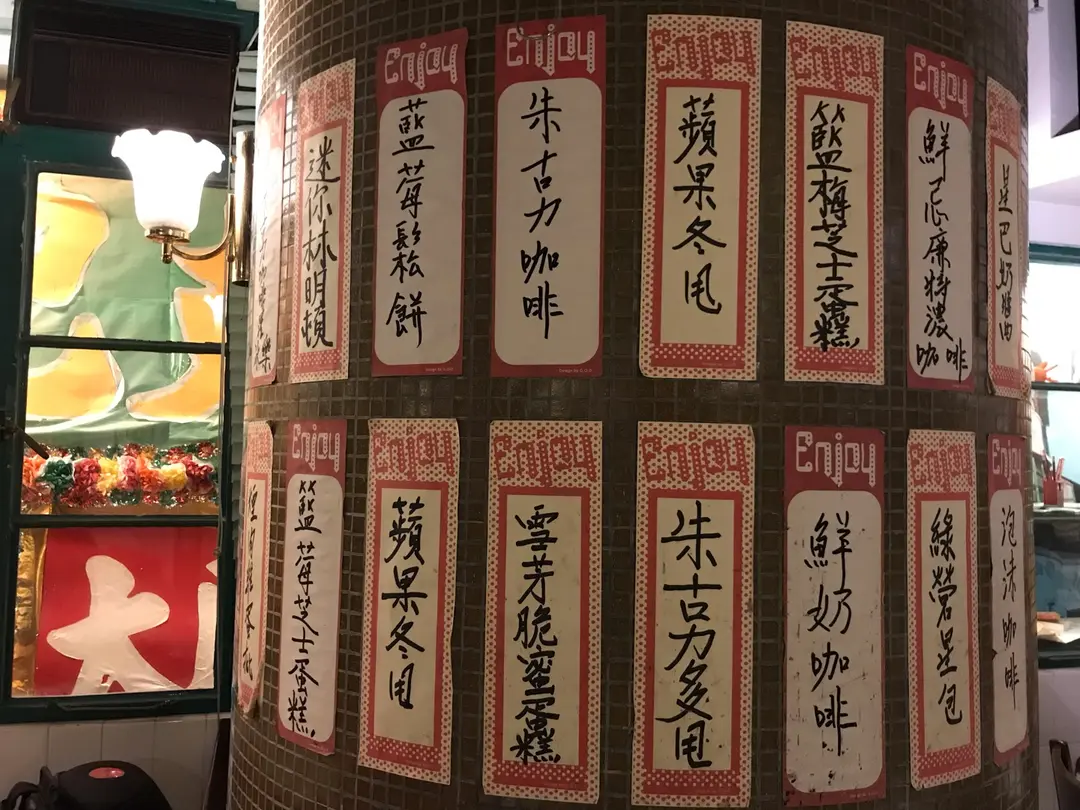 迷你林明頓
Enjoy
藍莓鬆餅
Enjoy
朱古力咖啡
Enjoy
蘋果冬甩
Enjoy
藍梅芝士蛋糕
Enjoy
鮮忌廉特濃咖啡
星巴奶油
Enjoy
藍莓芝士蛋糕
Enjoy
蘋果冬甩
Enjoy
雪芳脆蜜蛋糕
Enjoy
朱古力多甩
Enjoy
鮮奶咖啡
Enjoy
綠營星包
Enjoy
泡沫咖啡